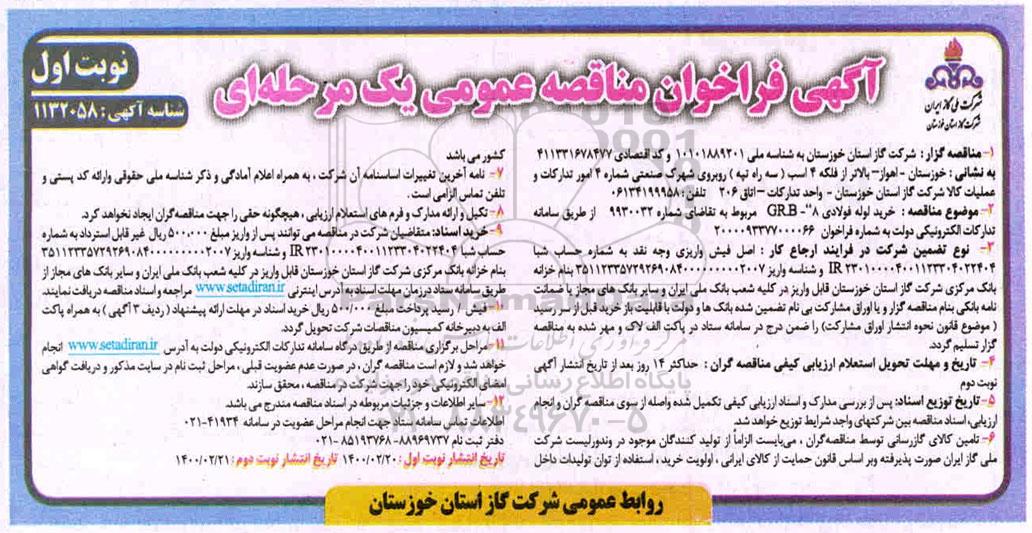 نوبت اول
شناسه آگهی: ۱۱۳۲۰۵۸
آگهی فراخوان مناقصه عمومی یک مرحله‌ای
شرکت ملی گاز ایران
شرکت گاز استان خوزستان
۱- مناقصه گزار: شرکت گاز استان خوزستان به شناسه ملی ۱۰۱۰۱۸۸۹۲۰۱ و کد اقتصادی ۴۱۱۳۳۱۶۷۸۴۷۷
به نشانی: خوزستان - اهواز- بالاتر از فلکه ۴ اسب (سه راه تپه) روبروی شهرک صنعتی شماره ۴ امور تدارکات و
عملیات کالا شرکت گاز استان خوزستان - واحد تدارکات - اتاق ۲۰۶ تلفن: ۰۶۱۳۴۱۹۹۹۵۸
۲- موضوع مناقصه: خرید لوله فولادی ۸"- GR.B مربوط به تقاضای شماره ۹۹۳۰۰۳۲ از طریق سامانه
تدارکات الکترونیکی دولت به شماره فراخوان ۲۰۰۰۰۹۳۳۷۷۰۰۰۰۶۶
۳- نوع تضمین شرکت در فرایند ارجاع کار: اصل فیش واریزی وجه نقد به شماره حساب شبا
IR ۲۳۰۱۰۰۰۰۴۰۰۱۱۲۳۳۰۴۰۲۲۴۰۴ و شناسه واریز ۳۵۱۱۲۳۳۵۷۲۹۲۶۹۰۸۴۰۰۰۰۰۰۰۰۰۰۲۰۰۷ بنام خزانه
بانک مرکزی شرکت گاز استان خوزستان قابل واریز در کلیه شعب بانک ملی ایران و سایر بانک های مجاز یا ضمانت
نامه بانکی بنام مناقصه گزار و یا اوراق مشارکت بی نام تضمین شده بانک ها و دولت با قابلیت باز خرید قبل از سر رسید
(موضوع قانون نحوه انتشار اوراق مشارکت) را ضمن درج در سامانه ستاد در پاکت الف لاک و مهر شده به مناقصه
گزار تسلیم گردد.
۴- تاریخ و مهلت تحویل استعلام ارزیابی کیفی مناقصه گران: حداکثر ۱۴ روز بعد از تاریخ انتشار آگهی
نوبت دوم
۵- تاریخ توزیع اسناد: پس از بررسی مدارک و اسناد ارزیابی کیفی تکمیل شده واصله از سوی مناقصه گران و انجام
ارزیابی، اسناد مناقصه بین شرکتهای واجد شرایط توزیع خواهد شد.
۶- تامین کالای گازرسانی توسط مناقصه‌گران، می‌بایست الزاماً از تولید کنندگان موجود در وندورلیست شرکت
ملی گاز ایران صورت پذیرفته وبر اساس قانون حمایت از کالای ایرانی، اولویت خرید، استفاده از توان تولیدات داخل
کشور می باشد
۷- نامه آخرین تغییرات اساسنامه آن شرکت، به همراه اعلام آمادگی و ذکر شناسه ملی حقوقی وارائه کد پستی و
تلفن تماس الزامی است.
۸- تکیل و ارائه مدارک و فرم های استعلام ارزیابی، هیچگونه حقی را جهت مناقصه‌گران ایجاد نخواهد کرد.
۹- خرید اسناد: متقاضیان شرکت در مناقصه می توانند پس از واریز مبلغ ۵۰۰،۰۰۰ ریال غیر قابل استرداد به شماره
حساب شبا IR ۲۳۰۱۰۰۰۰۴۰۰۱۱۲۳۳۰۴۰۲۲۴۰۴ و شناسه واریز ۳۵۱۱۲۳۳۵۷۲۹۲۶۹۰۸۴۰۰۰۰۰۰۰۰۰۰۲۰۰۷
بنام خزانه بانک مرکزی شرکت گاز استان خوزستان قابل واریز در کلیه شعب بانک ملی ایران و سایر بانک های مجاز از
طریق سامانه ستاد درزمان مهلت اسناد به آدرس اینترنتی www.setadiran.ir مراجعه و اسناد مناقصه دریافت نمایند.
۱۰- فیش / رسید پرداخت مبلغ ۵۰۰/۰۰۰ ریال خرید اسناد در مهلت ارائه پیشنهاد (ردیف ۳ آگهی) به همراه پاکت
الف به دبیرخانه کمیسیون مناقصات شرکت تحویل گردد.
۱۱- مراحل برگزاری مناقصه از طریق درگاه سامانه تدارکات الکترونیکی دولت به آدرس www.setadiran.ir انجام
خواهد شد و لازم است مناقصه گران، در صورت عدم عضویت قبلی، مراحل ثبت نام در سایت مذکور و دریافت گواهی
امضای الکترونیکی خود را جهت شرکت در مناقصه، محقق سازند.
۱۲- سایر اطلاعات و جزئیات مربوطه در اسناد مناقصه مندرج می باشد.
اطلاعات تماس سامانه ستاد جهت انجام مراحل عضویت در سامانه ۴۱۹۳۴-۰۲۱
دفتر ثبت نام ۸۸۹۶۹۷۳۷-۸۵۱۹۳۷۶۸ -۰۲۱
تاریخ انتشار نوبت اول: ۱۴۰۰/۰۲/۲۰ تاریخ انتشار نوبت دوم: ۱۴۰۰/۰۲/۲۱
روابط عمومی شرکت گاز استان خوزستان
ParsNamadData
پایگاه اطلاع رسانی
۰۲۱-۸۸۳۴۹۶۷۰-۵